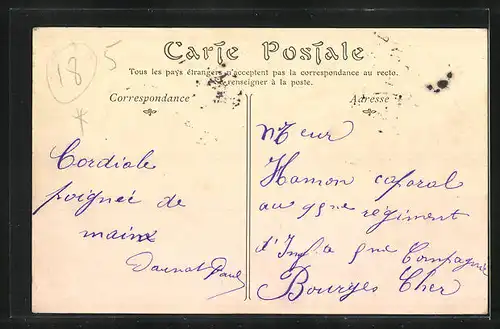 18
5
Carte Postale
Tous les pays étrangers n'acceptent pas la correspondance au recto.
renseigner à la poste.
Correspondance
Cordiale
poignée de
mains
Paul
Adresse
Hamon caporal
au 95ème régiment
d'Inf.ie Compagnie
Bourges Cher